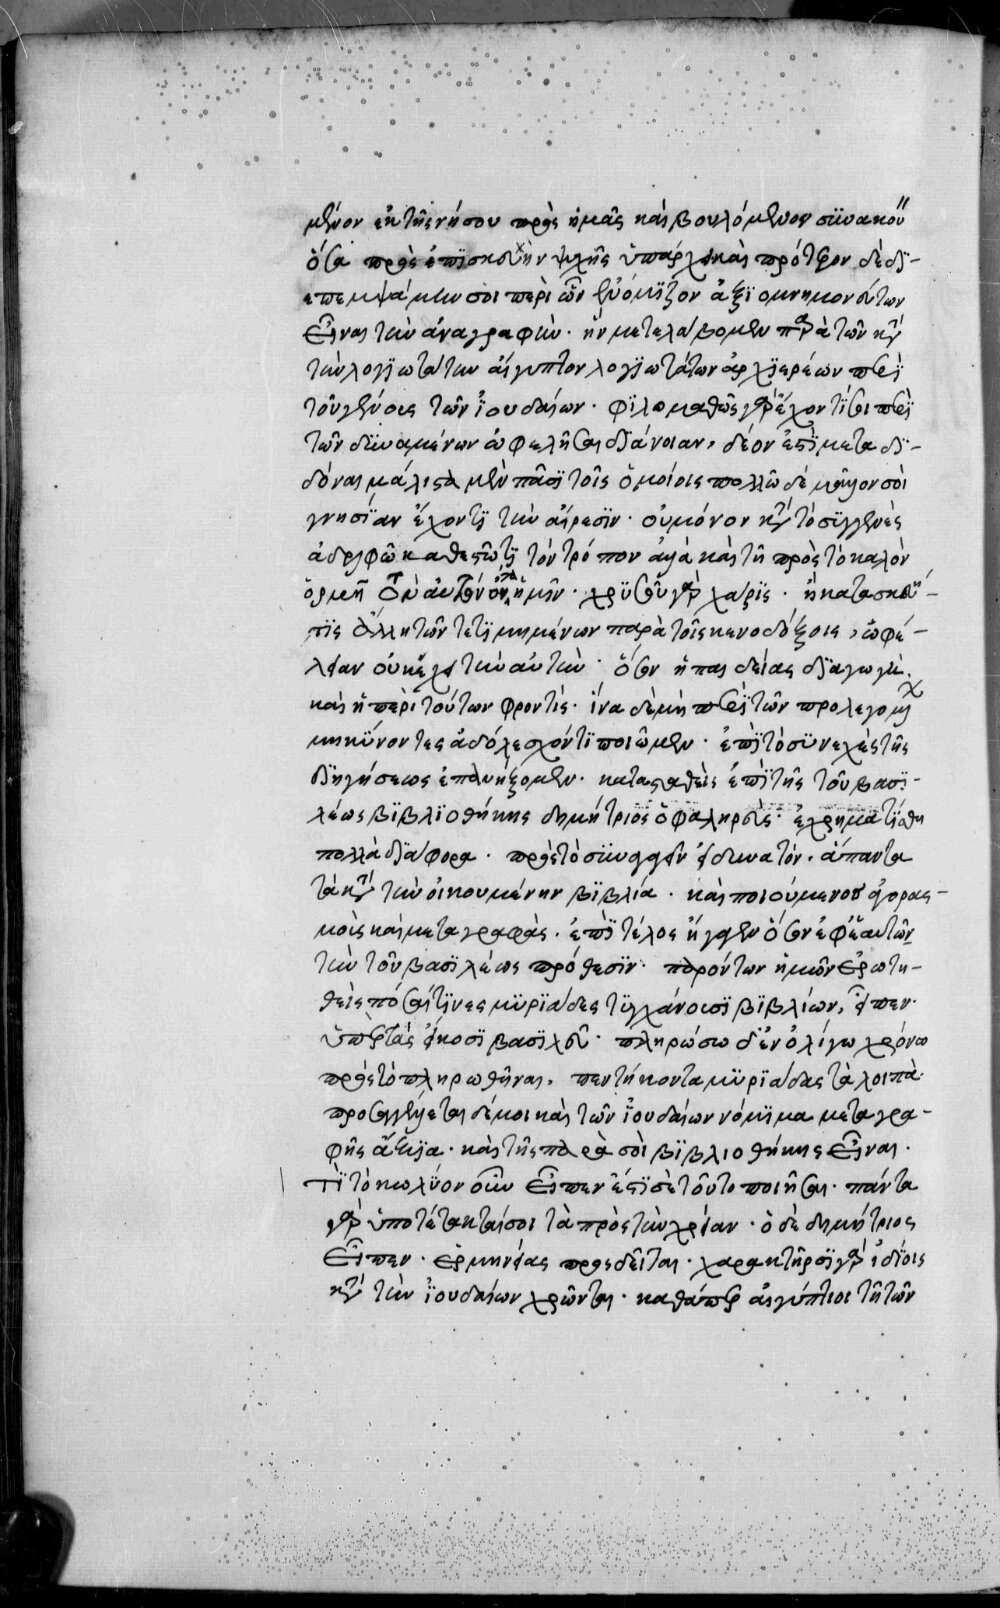 μένον ἐκ τῆς νήσου πρὸς ἡμᾶς καὶ βουλόμενον συνακού
ὅσα πρὸς ἐπισκευὴν ψυχῆς ὑπάρχει καὶ πρότερον δὲ δι-
επεμψάμην σοι περὶ ὧν ἐνόμιζον ἀξιομνημονεύτων
εἶναι τὴν ἀναγραφὴν· ἣν μετελάβομεν παρὰ τῶν κατὰ
τὴν λογιωτάτην αἴγυπτον λογιωτάτων ἀρχιερέων περὶ
τοῦ γένους τῶν ἰουδαίων· φιλομαθῶς γὰρ ἔχοντί σοι περὶ
τῶν δυναμένων ὠφελῆσαι διάνοιαν, δέον ἐστὶ μεταδι-
δόναι μάλιστα μὲν πᾶσι τοῖς ὁμοίοις πολλῶ δὲ μᾶλλον σοὶ
γνησίαν ἔχοντι τὴν αἵρεσιν· οὐ μόνον κατὰ τὸ συγγενὲς
ἀδελφῶ καθεστῶτι τὸν τρόπον ἀλλὰ καὶ τῆ πρὸς τὸ καλὸν
ὁρμῆ τὸν αὐτὸν ὄντα ἡμῖν· χρυσοῦ γὰρ χάρις· ἢ κατασκευή-
τις ἄλλη τῶν τετιμημένων παρὰ τοῖς κενοδόξοις, ὠφέ-
λειαν οὐκ ἔχει τὴν αὐτὴν· ὅσον ἡ παιδείας διαγωγὴ.
καὶ ἡ περὶ τούτων φροντίς· ἵνα δὲ μὴ περὶ τῶν προλεγομένων
μηκύνοντες ἀδόλεσχόν τι ποιῶμεν· ἐπὶ τὸ συνεχὲς τῆς
διηγήσεως ἐπανήξομεν· κατασταθεὶς ἐπὶ τῆς τοῦ βασι-
λέως βιβλιοθήκης δημήτριος ὁ φαληρεὺς· ἐχρηματίσθη
πολλὰ διάφορα· πρὸς τὸ συναγαγεῖν εἰ δυνατόν· ἅπαντα
τὰ κατὰ τὴν οἰκουμένην βιβλία· καὶ ποιούμενος ἀγορασ-
μοὺς καὶ μεταγραφὰς· ἐπὶ τέλος ἤγαγεν ὅσον ἐφ' ἑαυτῶ
τὴν τοῦ βασιλέως πρόθεσιν· παρόντων ἡμῶν ἐρωτη-
θεὶς πόσαι τινες μυριάδες τυγχάνουσι βιβλίων, εἶπεν·
ὑπὲρ τὰς εἴκοσι βασιλεῦ· πληρώσω δ' ἐν ὀλίγω χρόνω
πρὸς τὸ πληρωθῆναι, πεντήκοντα μυριάδας τὰ λοιπὰ·
προσαγγέλλεται δέ μοι καὶ τῶν ἰουδαίων νόμιμα μεταγρα-
φῆς ἄξια· καὶ τῆς παρὰ σοὶ βιβλιοθήκης εἶναι·
τί τὸ κωλύον οὖν εἶπεν ἐστί σε τοῦτο ποιῆσαι· πάντα
γὰρ ὑποτέτακταί σοι τὰ πρὸς τὴν χρείαν· ὁ δὲ δημήτριος
εἶπεν· ἑρμηνείας προσδεῖται· χαρακτῆρσι γὰρ ἰδίοις
κατὰ τὴν ἰουδαίων χρῶνται· καθάπερ αἰγύπτιοι τῆ τῶν